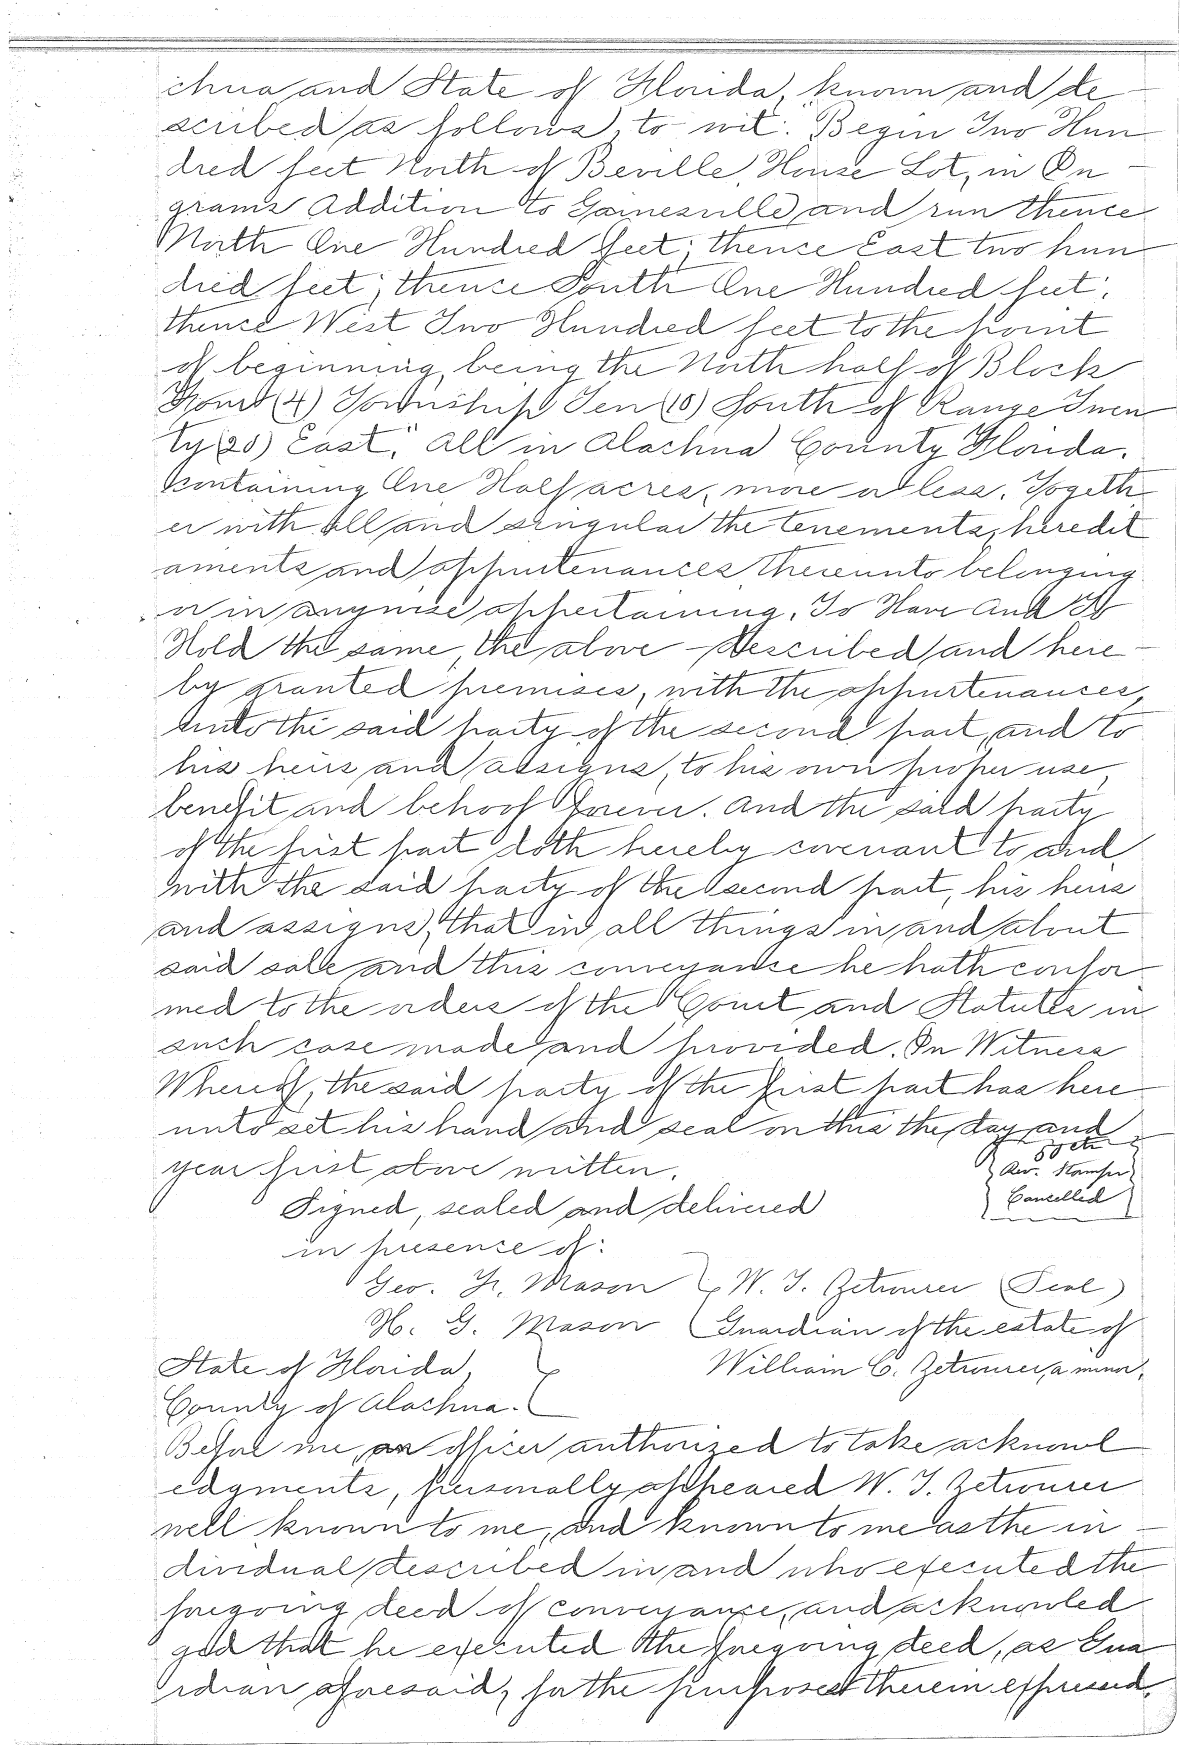 chua and State of Florida, known and de
scribed as follows, to wit: "Begin Two Hun
dred feet North of Beville, House Lot, in In
grams Addition to Gainesville, and run thence
North One Hundred feet; thence East two hun
dred feet; thence South One Hundred feet;
thence West Two Hundred feet to the point
of beginning, being the North half of Block
Four (4) Township Ten (10) South of Range Twen
ty (20) East." All in Alachua County Florida.
containing One Half acres, more or less. Togeth
er with all and singular the tenements, heredit
aments and appurtenances thereunto belonging
or in anywise appertaining. To Have And To
Hold the same, the above-described and here-
by granted premises, with the appurtenances,
unto the said party of the second part, and to
his heirs and assigns, to his own proper use,
benefit and behoof forever. And the said party
of the first part doth hereby covenant to and
with the said party of the second part, his heirs
and assigns, that in all things in and about
said sale and this conveyance he hath confor
med to the orders of the Court and Statutes in
such case made and provided. In Witness
Whereof, the said party of the first part has here
unto set his hand and seal on this the day and
year first above written.
cts
Rev. Stamps
Cancelled
Signed, sealed and delivered
in presence of:
Geo. F. Mason W. T. Zetrouer (Seal)
H. G. Mason Guardian of the estate of
State of Florida, William C. Zetrouer, a minor.
County of Alachua.
Before me, an officer authorized to take acknowl
edgments, personally appeared W. T. Zetrouer
well known to me, and known to me as the in-
dividual described in and who executed the
foregoing deed of conveyance, and acknowled
ged that he executed the foregoing deed, as Gua
rdian aforesaid, for the purposes therein expressed.